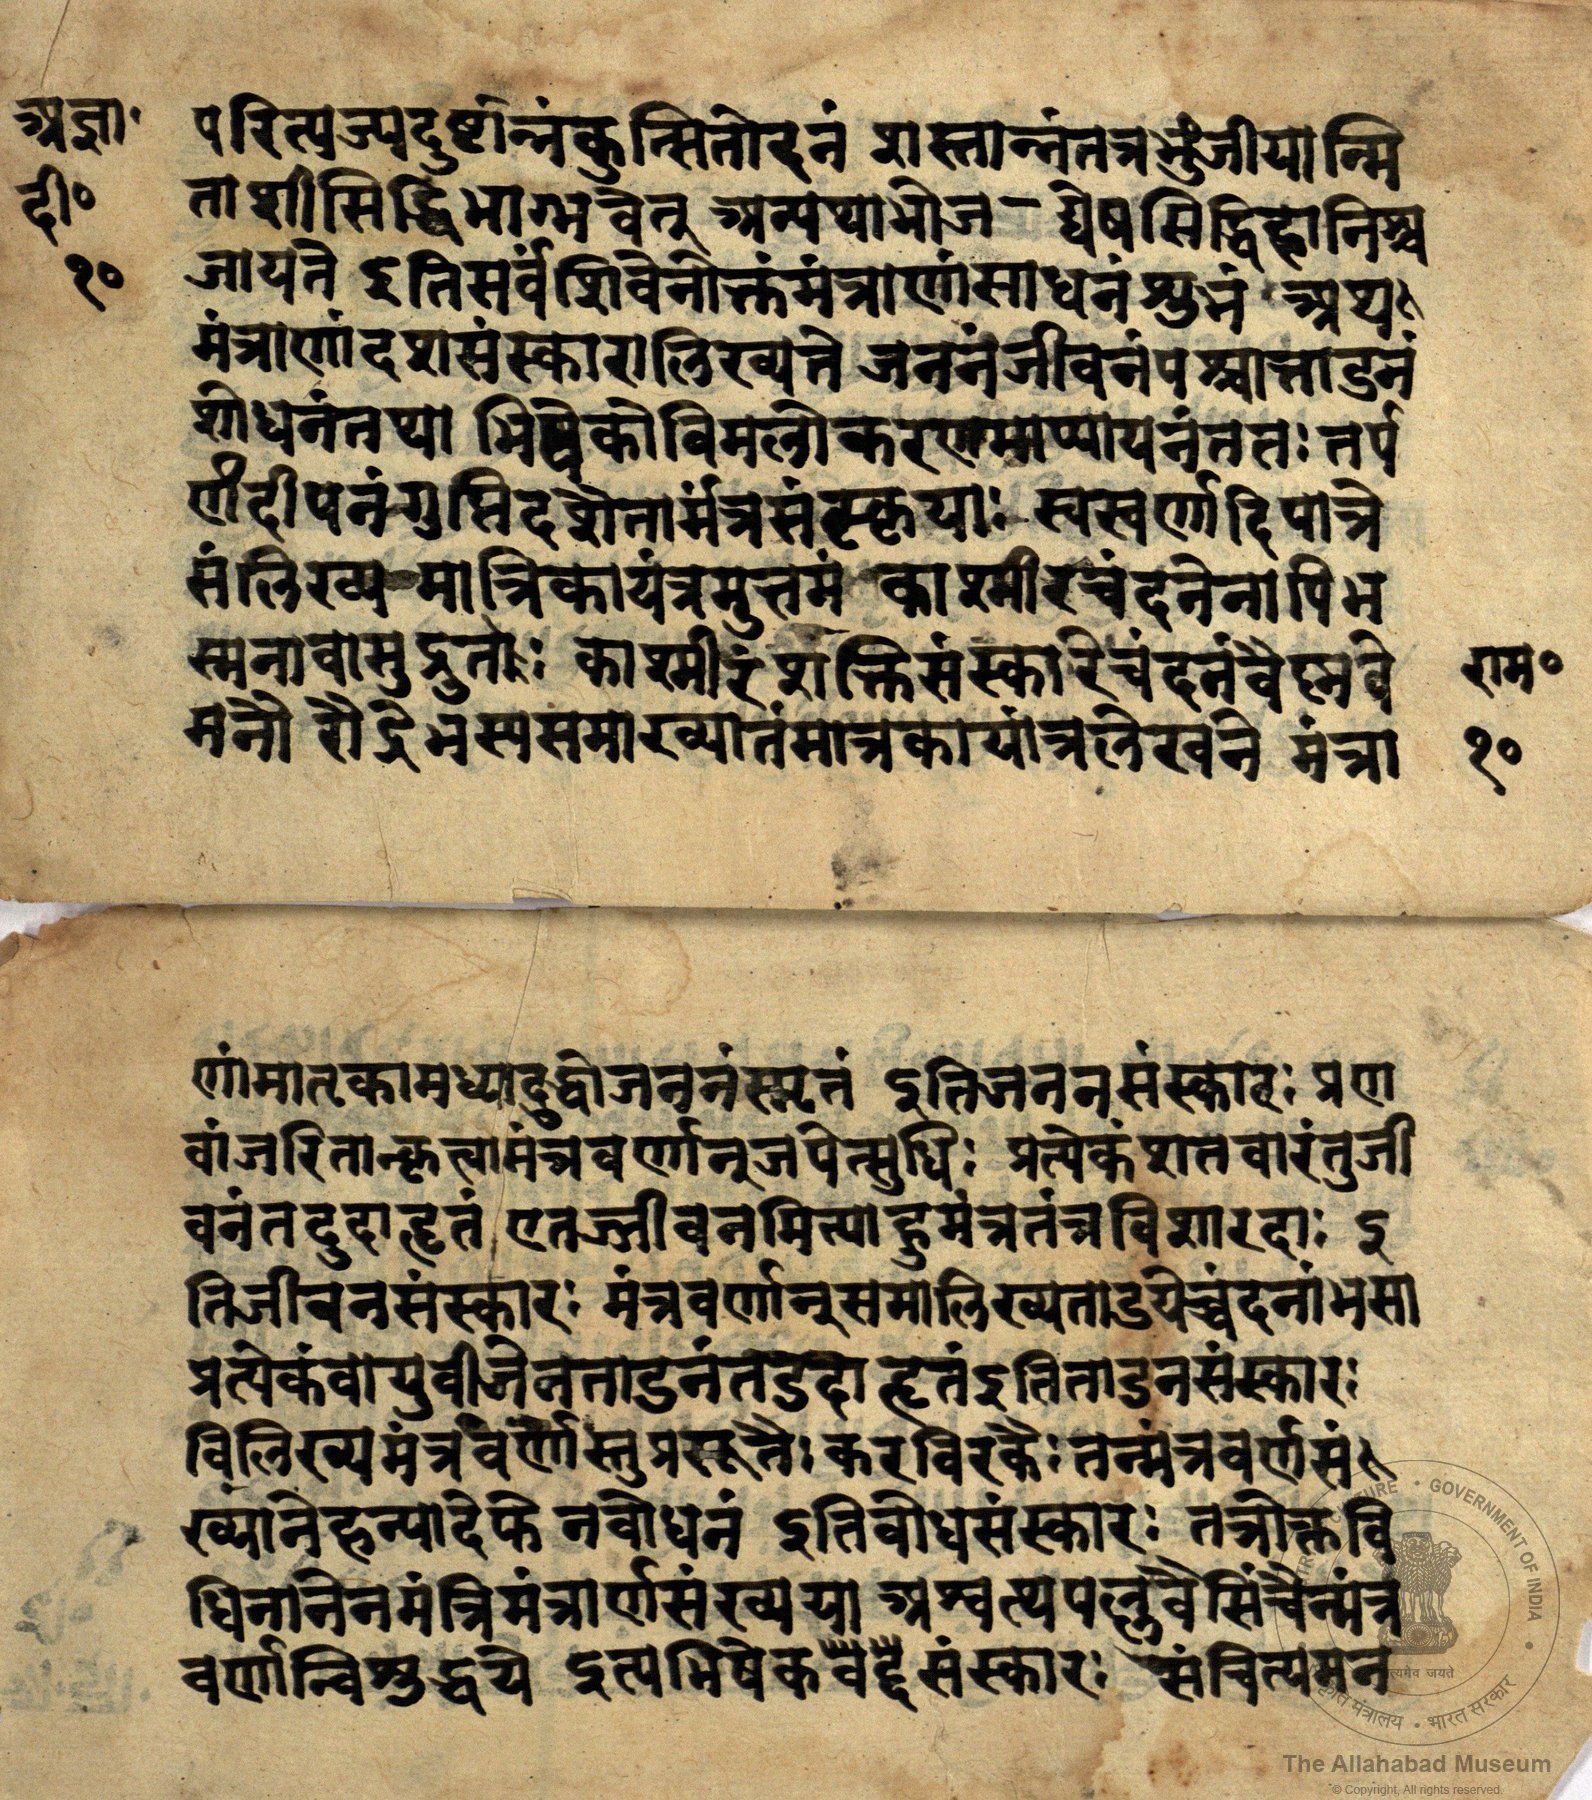 अज्ञा॰ परित्यज्यदुष्टांन्नंकुत्सितोदनं शस्तान्नंतत्रभुंजीयान्मि
दी॰ ताशीसिद्धिभाग्भवेतू अन्यथाभोज - द्येषसिद्धिहानिश्च
१० जायते इतिसर्वंशिवेनोक्तंमंत्राणांसाधनंशुभं अथ
मंत्राणांदशसंस्कारालिख्यते जननंजीवनंपश्चात्ताडनं
शोधनंतथा भिषेकोविमलीकरणमाप्यायनंततः तर्प
णेदीपनंगुप्तिदशैतार्मंत्रसंत्स्कृयाः स्वस्वर्णादिपात्रे
संलिख्य मात्रिकायंत्रमुत्तमं काश्मीरचंदनेनापिभ
स्मनावासुद्रुताः काश्मीरंशक्तिसंस्कारेचंदनंवैष्नवे
राम॰
मनौ रौद्रेभस्यसमाख्यातंमात्रकायांत्रलेखने मंत्रा
१०
णांमातृकामध्यादुद्धोजननंस्मृतं इतिजननसंस्कारः प्रण
वांजरितान्कृत्वामंत्रवर्णानुजपेत्सुधिः प्रत्येकंशतवारंतुजी
वनंतदुदाहृतं एतज्जीवनमित्याहुमंत्रतंत्रविशारदाः इ
तिजीवनसंस्कारः मंत्रवर्णानुसमालिख्यताडयेच्चंदनांभसा
प्रत्येकंवायुवीजेनताडनंतडदाहृतंइतिताडनसंस्कारः
विलिख्यमंत्रवर्णास्तुप्रसूनैः करविरकैः तन्मंत्रवर्णसं
ख्यानेहन्यादेफेनवोधनं इतिवोधसंस्कारः तत्रोक्तवि
धिनानेनमंत्रिमंत्रार्णसंख्यया अश्वत्थपल्लवैसिंचेन्मंत्र
वर्णान्विशुद्धये इत्यभिषेकवैद्दैसंस्कारः संचित्यमन
CULTURE • GOVERNMENT OF INDIA
सत्यमेव जयते
संस्कृति मंत्रालय • भारत सरकार
The Allahabad Museum
© Copyright, All rights reserved.